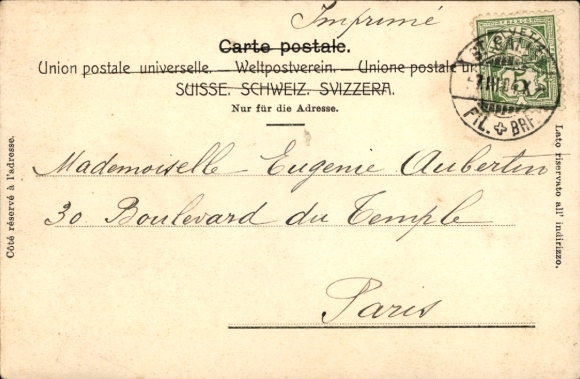 Imprimé
Carte postale.
Union postale universelle. — Weltpostverein. — Unione postale
SUISSE. SCHWEIZ. SVIZZERA.
Nur für die Adresse.
Côté réservé à l'adresse.
Lato riservato all' indirizzo.
Mademoiselle Eugenie Aubertin
30 Boulevard du Temple
Paris
ST. GALLEN
7.III.04.X
FIL. BRF.
5